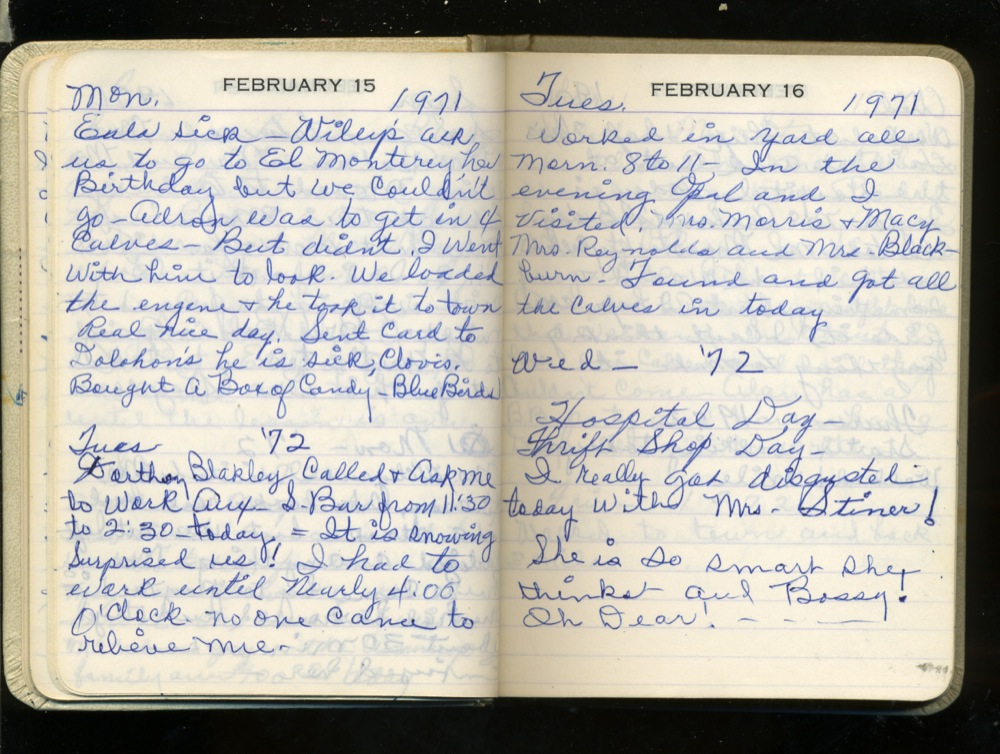 FEBRUARY 15
Mon. 1971
Eula sick – Wiley's ask
us to go to El Monterey her
Birthday but we couldn't
go – Adron was to get in 4
Calves – But didnt. I went
with him to look. We loaded
the engine & he took it to town
Real nice day. Sent Card to
Dolohon's he is sick, Clovis.
Bought A Box of Candy – Blue Birds
Tues '72
Blakley Called & Ask me
to work Aux – S. Bar from 11:30
to 2:30 – today. – It is snowing
Surprised us! I had to
work until Nearly 4:00
O'Clock. no one Came to
relieve me –
FEBRUARY 16
Tues. 1971
Worked in Yard all
Morn. 8 to 11 – In the
evening and I
Visited, Mrs. Morris & Macy
Mrs. Reynolds and Mrs. Black-
burn – Found and got all
the Calves in today
Wed – '72
Hospital Day –
Thrift Shop Day –
I really got disgusted
today with Mrs. Stiner!
She is so smart she
thinks and Bossy!
Oh Dear! – – –